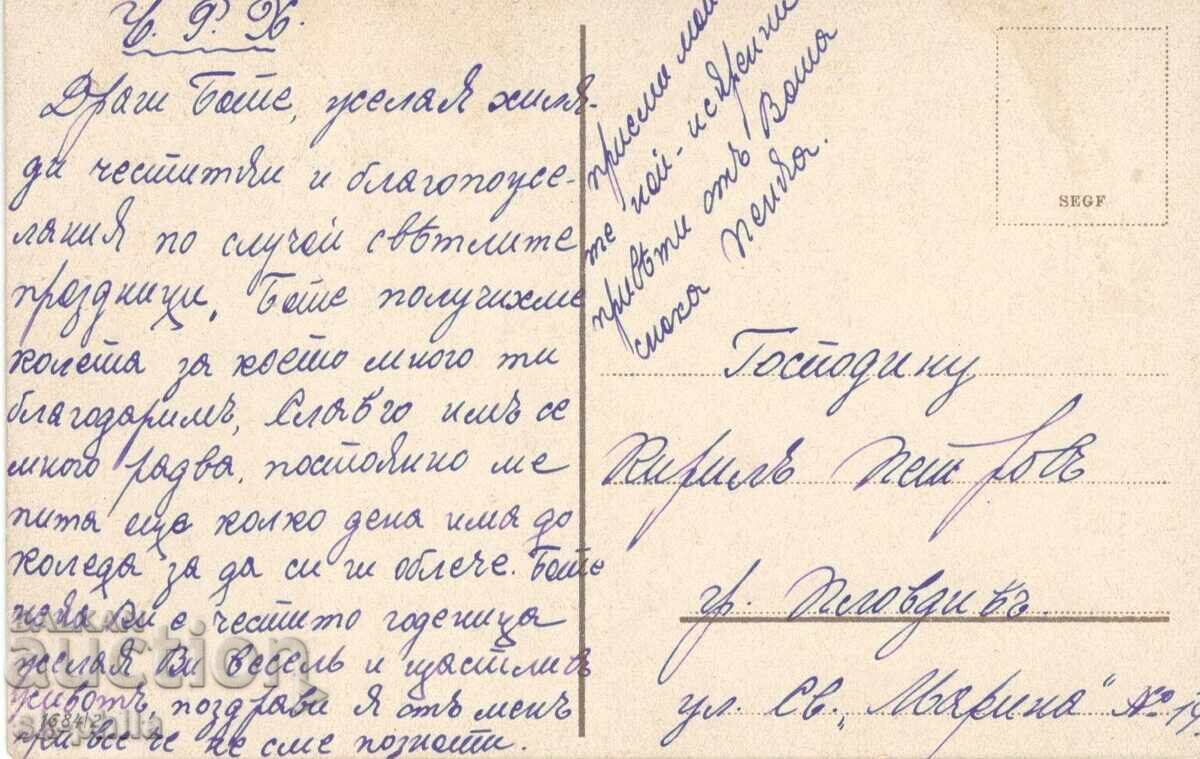 Ч. Р. Х.
Драги Бате, желая хиля-
ди честитки и благопоже-
лания по случай свѣтлите
празници. Бате получихме
колета за което много ти
благодаримъ, Славчо имъ се
много радва, постоянно ме
пита още колко дена има до
коледа за да си ги облече. Бате
нека Ви е честито годеница
желая Ви веселъ и щастливъ
животъ, поздрави я отъ менъ
при все че не сме познати.
приеми мои
те най-искренни
привѣти отъ Ваша
снаха Пенка.
SEGF
Господину
Кирилъ Петровъ
гр. Пловдивъ
ул. Св. „Марина" № 19
BALKAN
auction
skapalia
1684/2